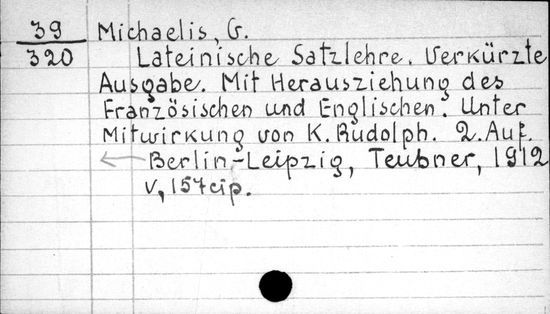 39 Michaelis, G.
320 Lateinische Satzlehre. Verkürzte
Ausgabe. Mit Herausziehung des
Französischen und Englischen. Unter
Mitwirkung von K. Rudolph. 2. Aufl.
Berlin-Leipzig, Teubner, 1912
V, 157 cip.